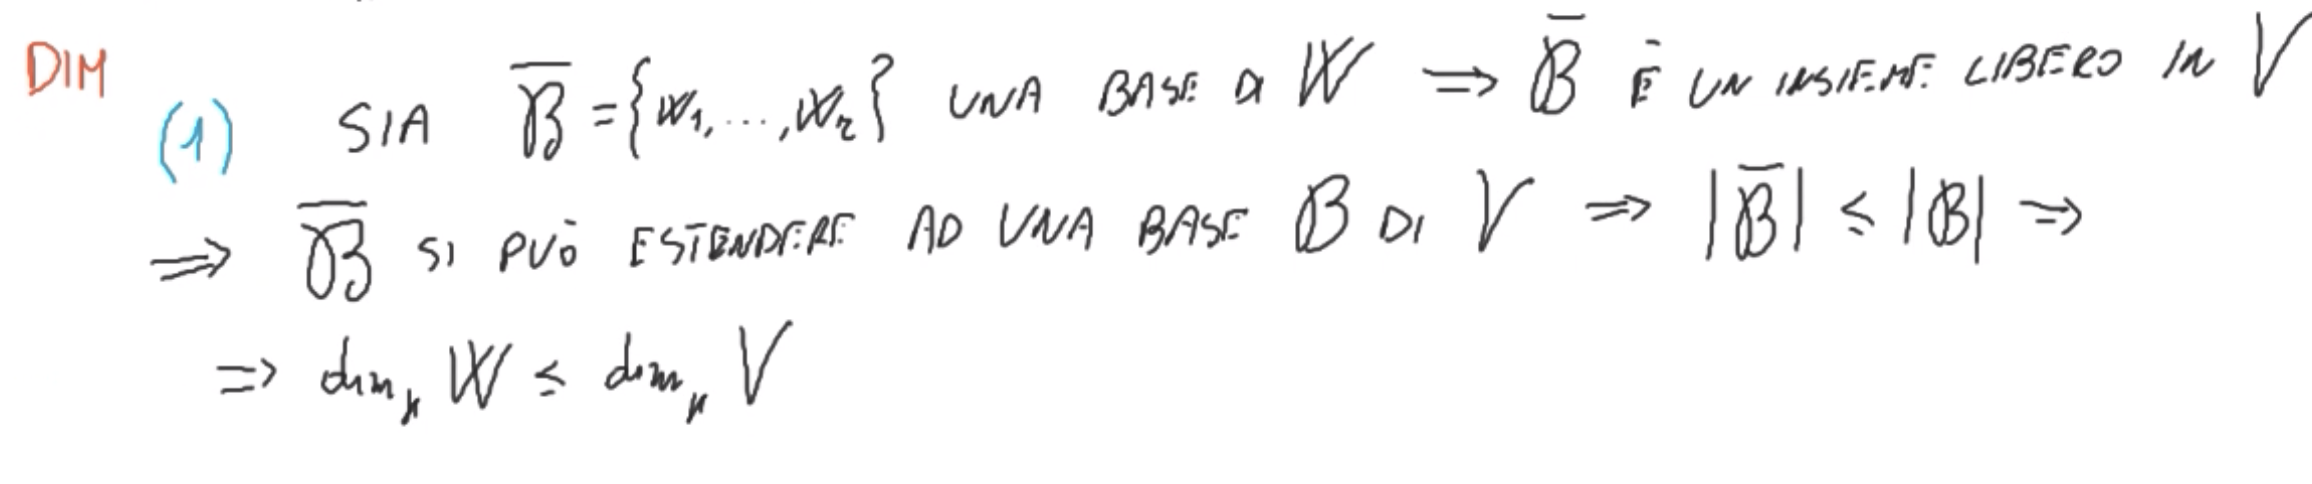 DIM
(1) SIA B̅ = {w₁, ..., wᵣ} UNA BASE DI W ⟹ B̅ È UN INSIEME LIBERO IN V
⟹ B̅ SI PUÒ ESTENDERE AD UNA BASE B DI V ⟹ |B̅| ≤ |B| ⟹
⟹ dimₖ W ≤ dimₖ V